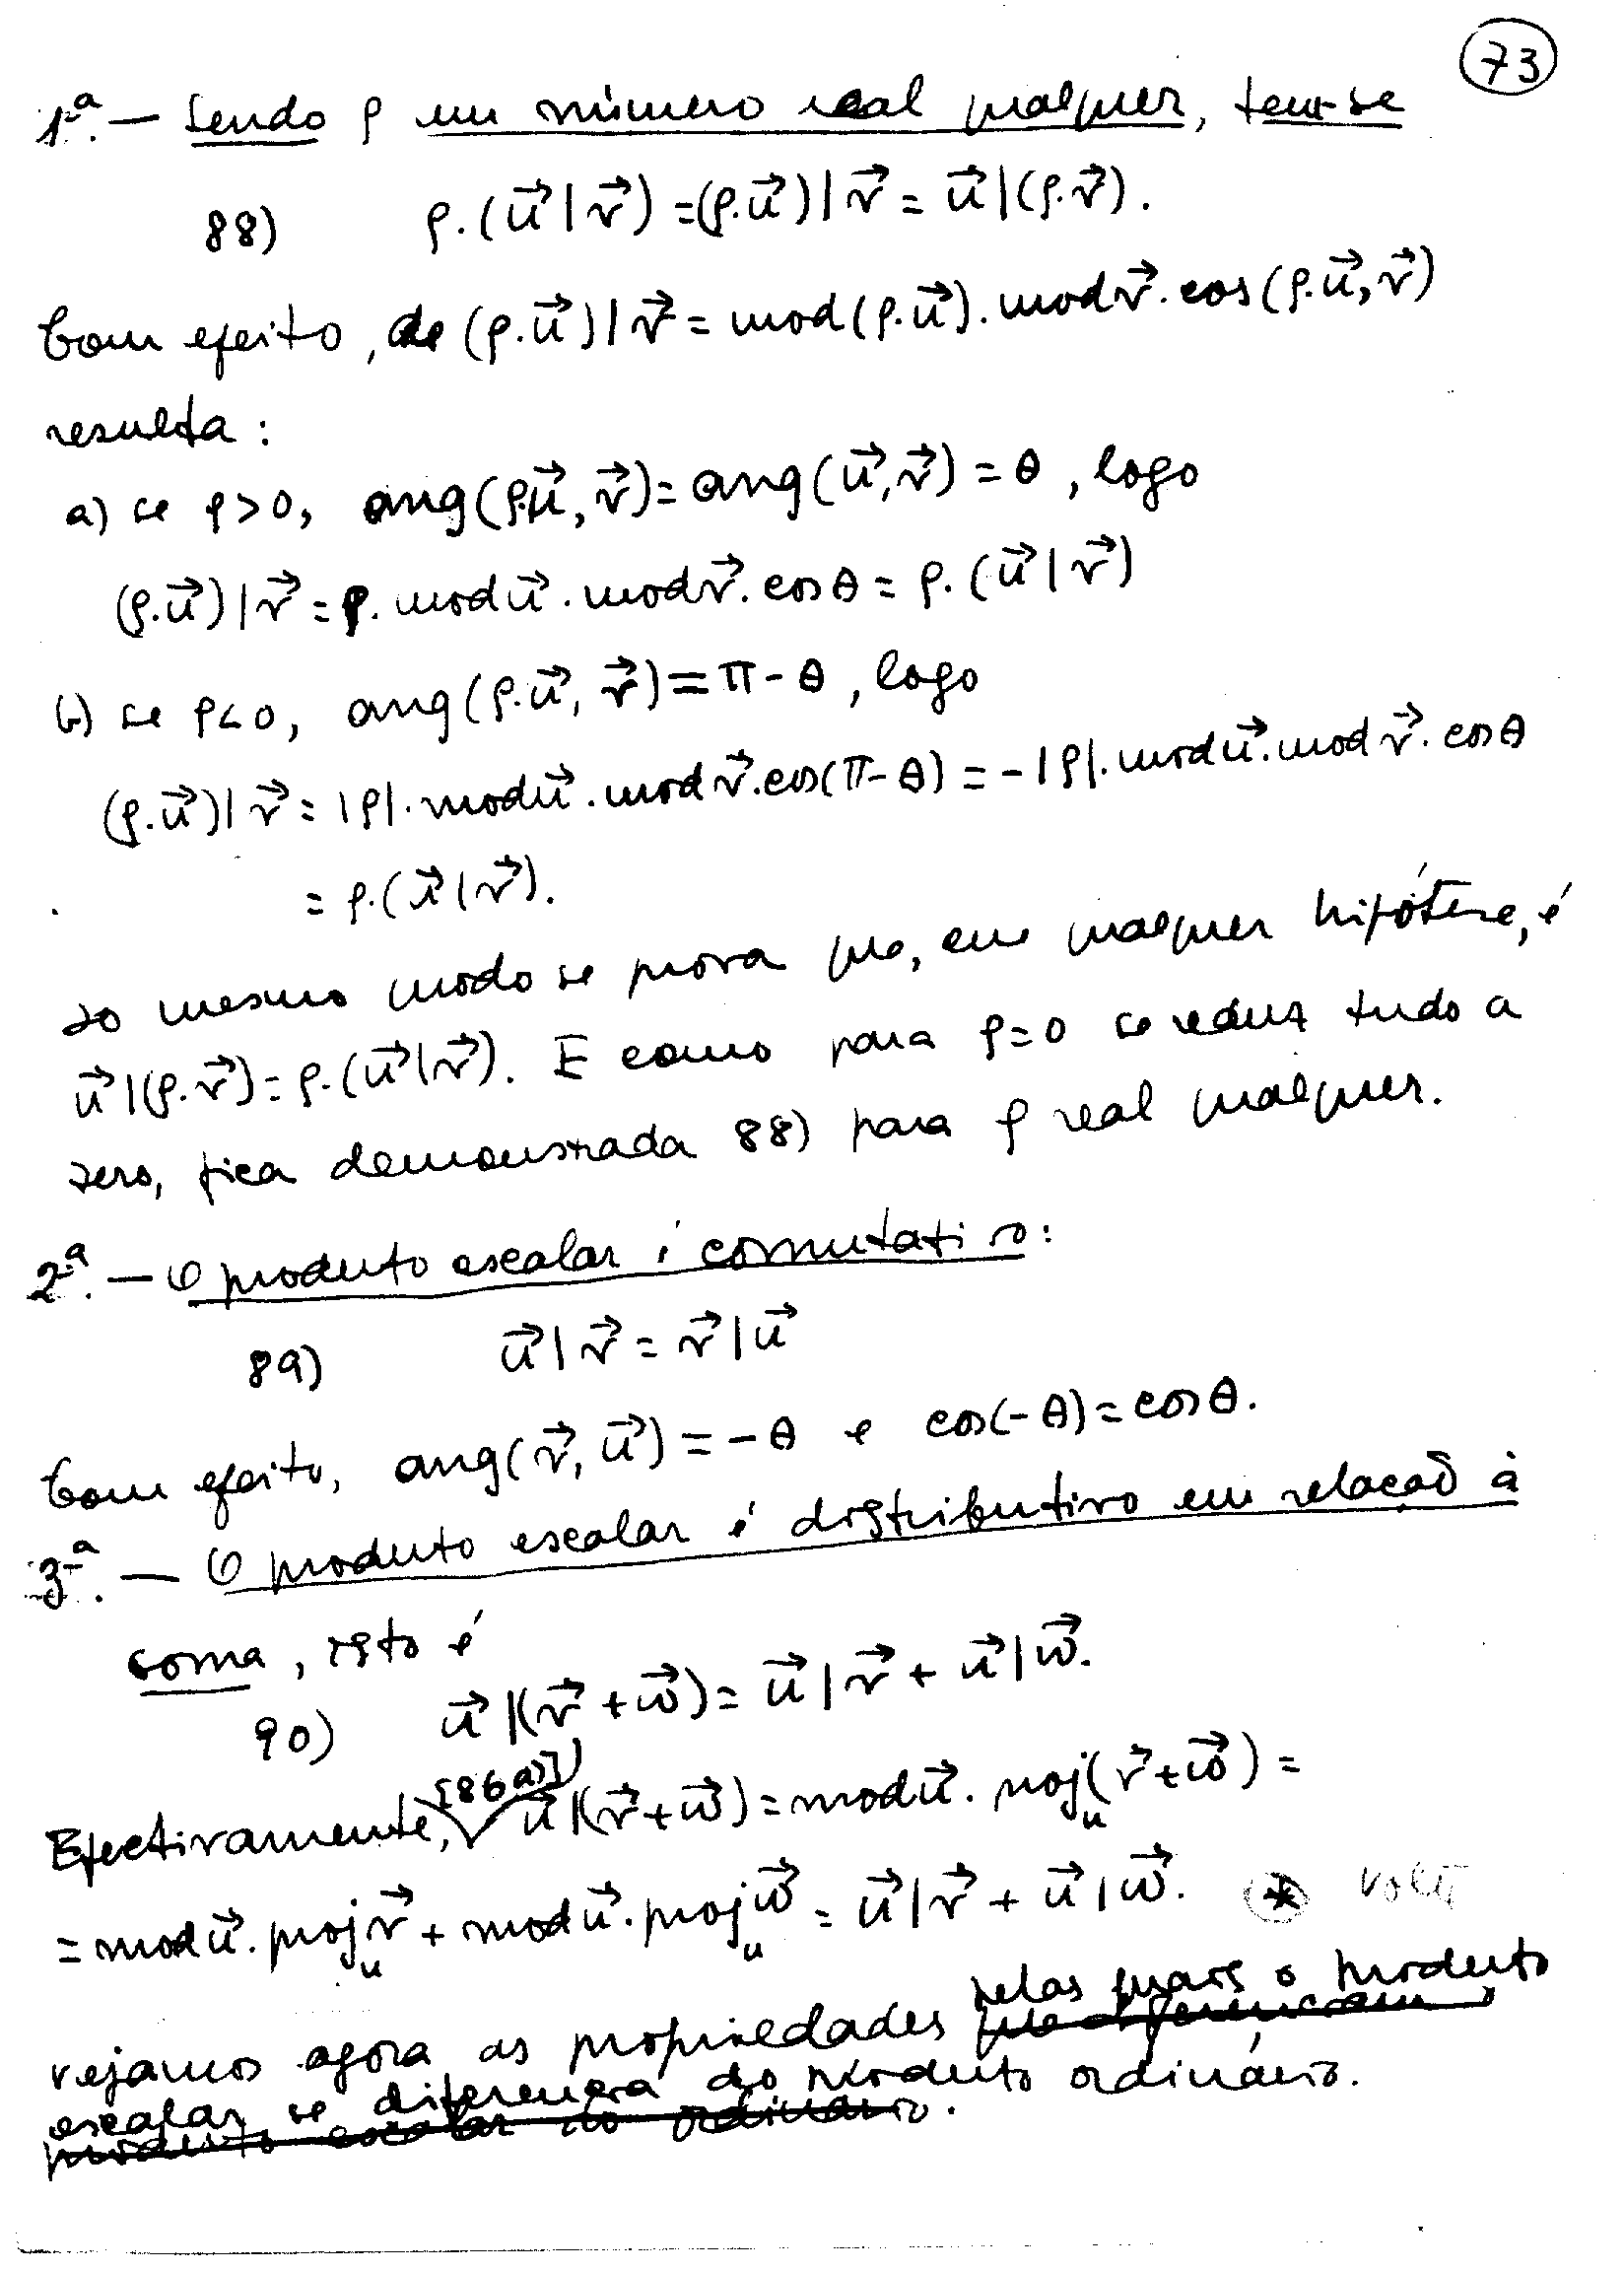 73
1ª. — Sendo ρ um número real qualquer, tem-se
88) ρ.(u⃗|v⃗) = (ρ.u⃗)|v⃗ = u⃗|(ρ.v⃗).
Com efeito, de (ρ.u⃗)|v⃗ = mod(ρ.u⃗).mod v⃗.cos(ρ.u⃗,v⃗)
resulta:
a) se ρ>0, ang(ρ.u⃗,v⃗) = ang(u⃗,v⃗) = θ, logo
(ρ.u⃗)|v⃗ = ρ.mod u⃗.mod v⃗.cos θ = ρ.(u⃗|v⃗)
b) se ρ<0, ang(ρ.u⃗,v⃗) = π-θ, logo
(ρ.u⃗)|v⃗ = |ρ|.mod u⃗.mod v⃗.cos(π-θ) = -|ρ|.mod u⃗.mod v⃗.cos θ
= ρ.(u⃗|v⃗).
Do mesmo modo se prova que, em qualquer hipótese, é
u⃗|(ρ.v⃗) = ρ.(u⃗|v⃗). E como para ρ=0 se reduz tudo a
zero, fica demonstrada 88) para ρ real qualquer.
2ª. — O produto escalar é comutativo:
89) u⃗|v⃗ = v⃗|u⃗
Com efeito, ang(v⃗,u⃗) = -θ e cos(-θ) = cos θ.
3ª. — O produto escalar é distributivo em relação à
soma, isto é
90) u⃗|(v⃗+w⃗) = u⃗|v⃗ + u⃗|w⃗.
[86a)]
Efectivamente, u⃗|(v⃗+w⃗) = mod u⃗.proj_u(v⃗+w⃗) =
= mod u⃗.proj_u v⃗ + mod u⃗.proj_u w⃗ = u⃗|v⃗ + u⃗|w⃗. * volte
pelas quais o produto
Vejamos agora as propriedades que diferenciam o
escalar se diferencia do produto ordinário.
produto escalar do ordinário.